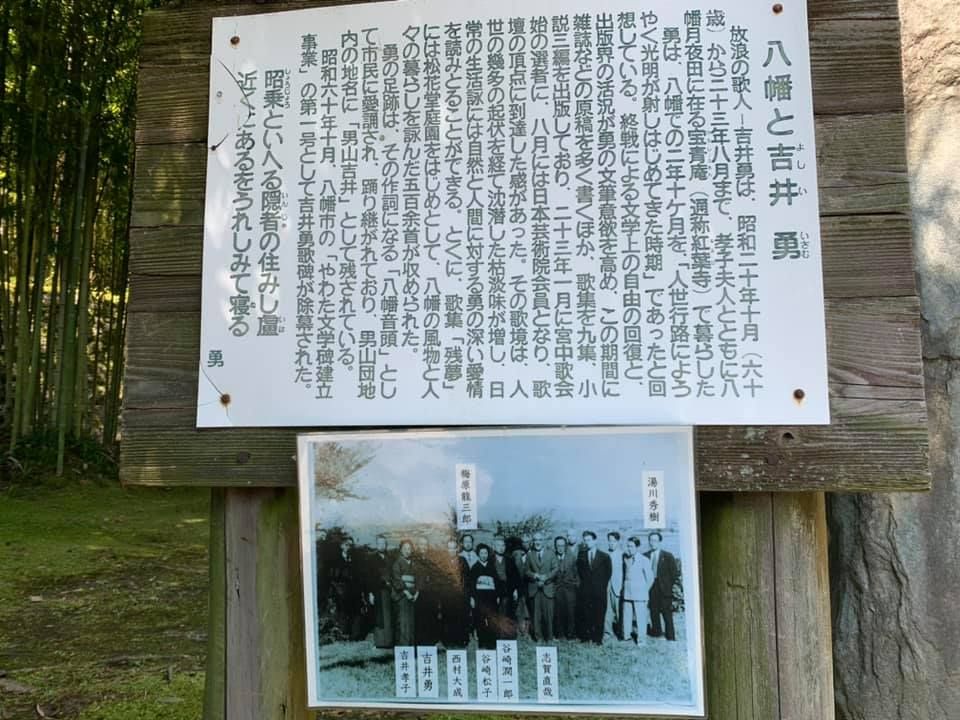 八幡と吉井　勇
よしい
いさむ
放浪の歌人－吉井勇は、昭和二十年十月（六十
歳）から二十三年八月まで、孝子夫人とともに八
幡月夜田に在る宝青庵（通称紅葉寺）で暮らした
勇は、八幡での二年十ケ月を、「人世行路にようやく光明が射しはじめてきた時期」であったと回
想している。終戦による文学上の自由の回復と、
出版界の活況が勇の文筆意欲を高め、この期間に
雑誌などの原稿を多く書くほか、歌集を九集、小
説三編を出版しており、二十三年一月に宮中歌会
始の選者に、八月には日本芸術院会員となり、歌
壇の頂点に到達した感があった。その歌境は、人
世の幾多の起伏を経て沈潜した枯淡味が増し、日
常の生活詠には自然と人間に対する勇の深い愛情
を読みとることができる。とくに、歌集「残夢」
には松花堂庭園をはじめとして、八幡の風物と人
々の暮らしを詠んだ五百余首が収められた。
勇の足跡は、その作詞になる「八幡音頭」とし
て市民に愛誦され、踊り継がれており、男山団地
内の地名に、「男山吉井」として残されている。
昭和六十年十月、八幡市の「やわた文学碑建立
事業」の第一号として吉井勇歌碑が除幕された。
昭乗といへる隠者の住みし廬
しょうじょう
いんじゃ
いほ
近くにあるをうれしみて寝る
ぬ
勇
梅原龍三郎
湯川秀樹
吉井孝子
吉井勇
西村大成
谷崎松子
谷崎潤一郎
志賀直哉